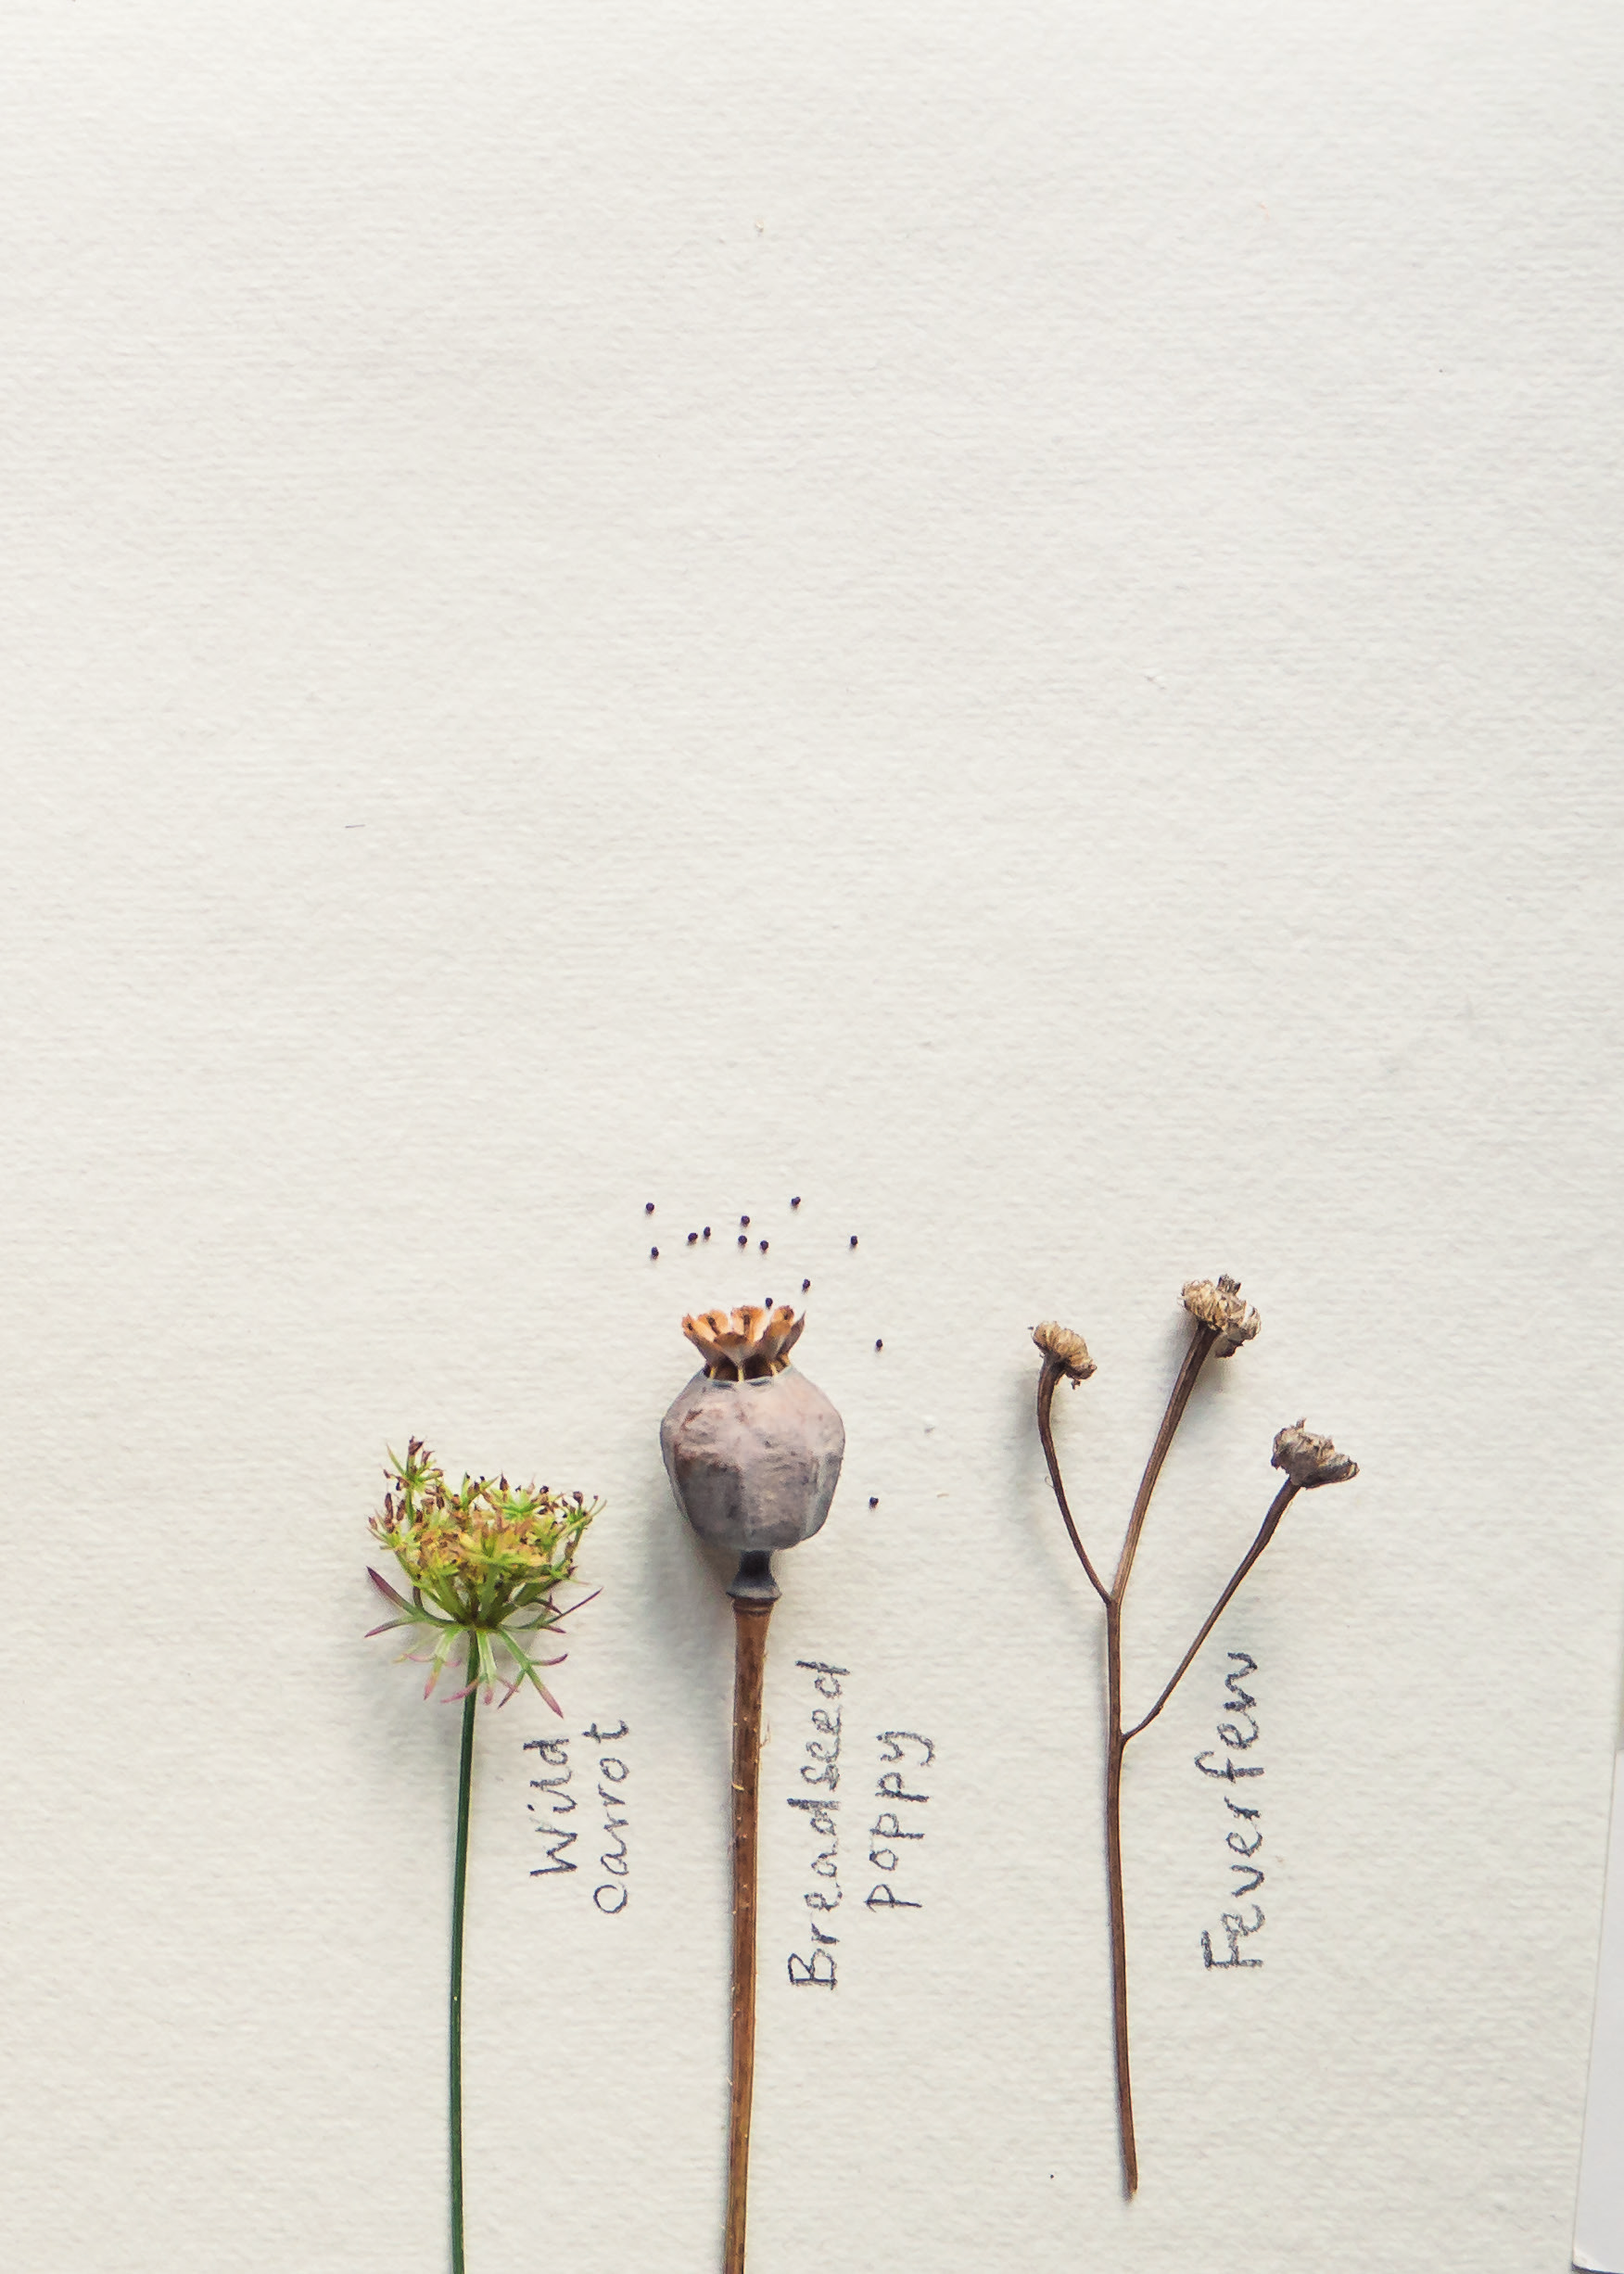 Wild
carrot
Breadseed
poppy
Feverfew